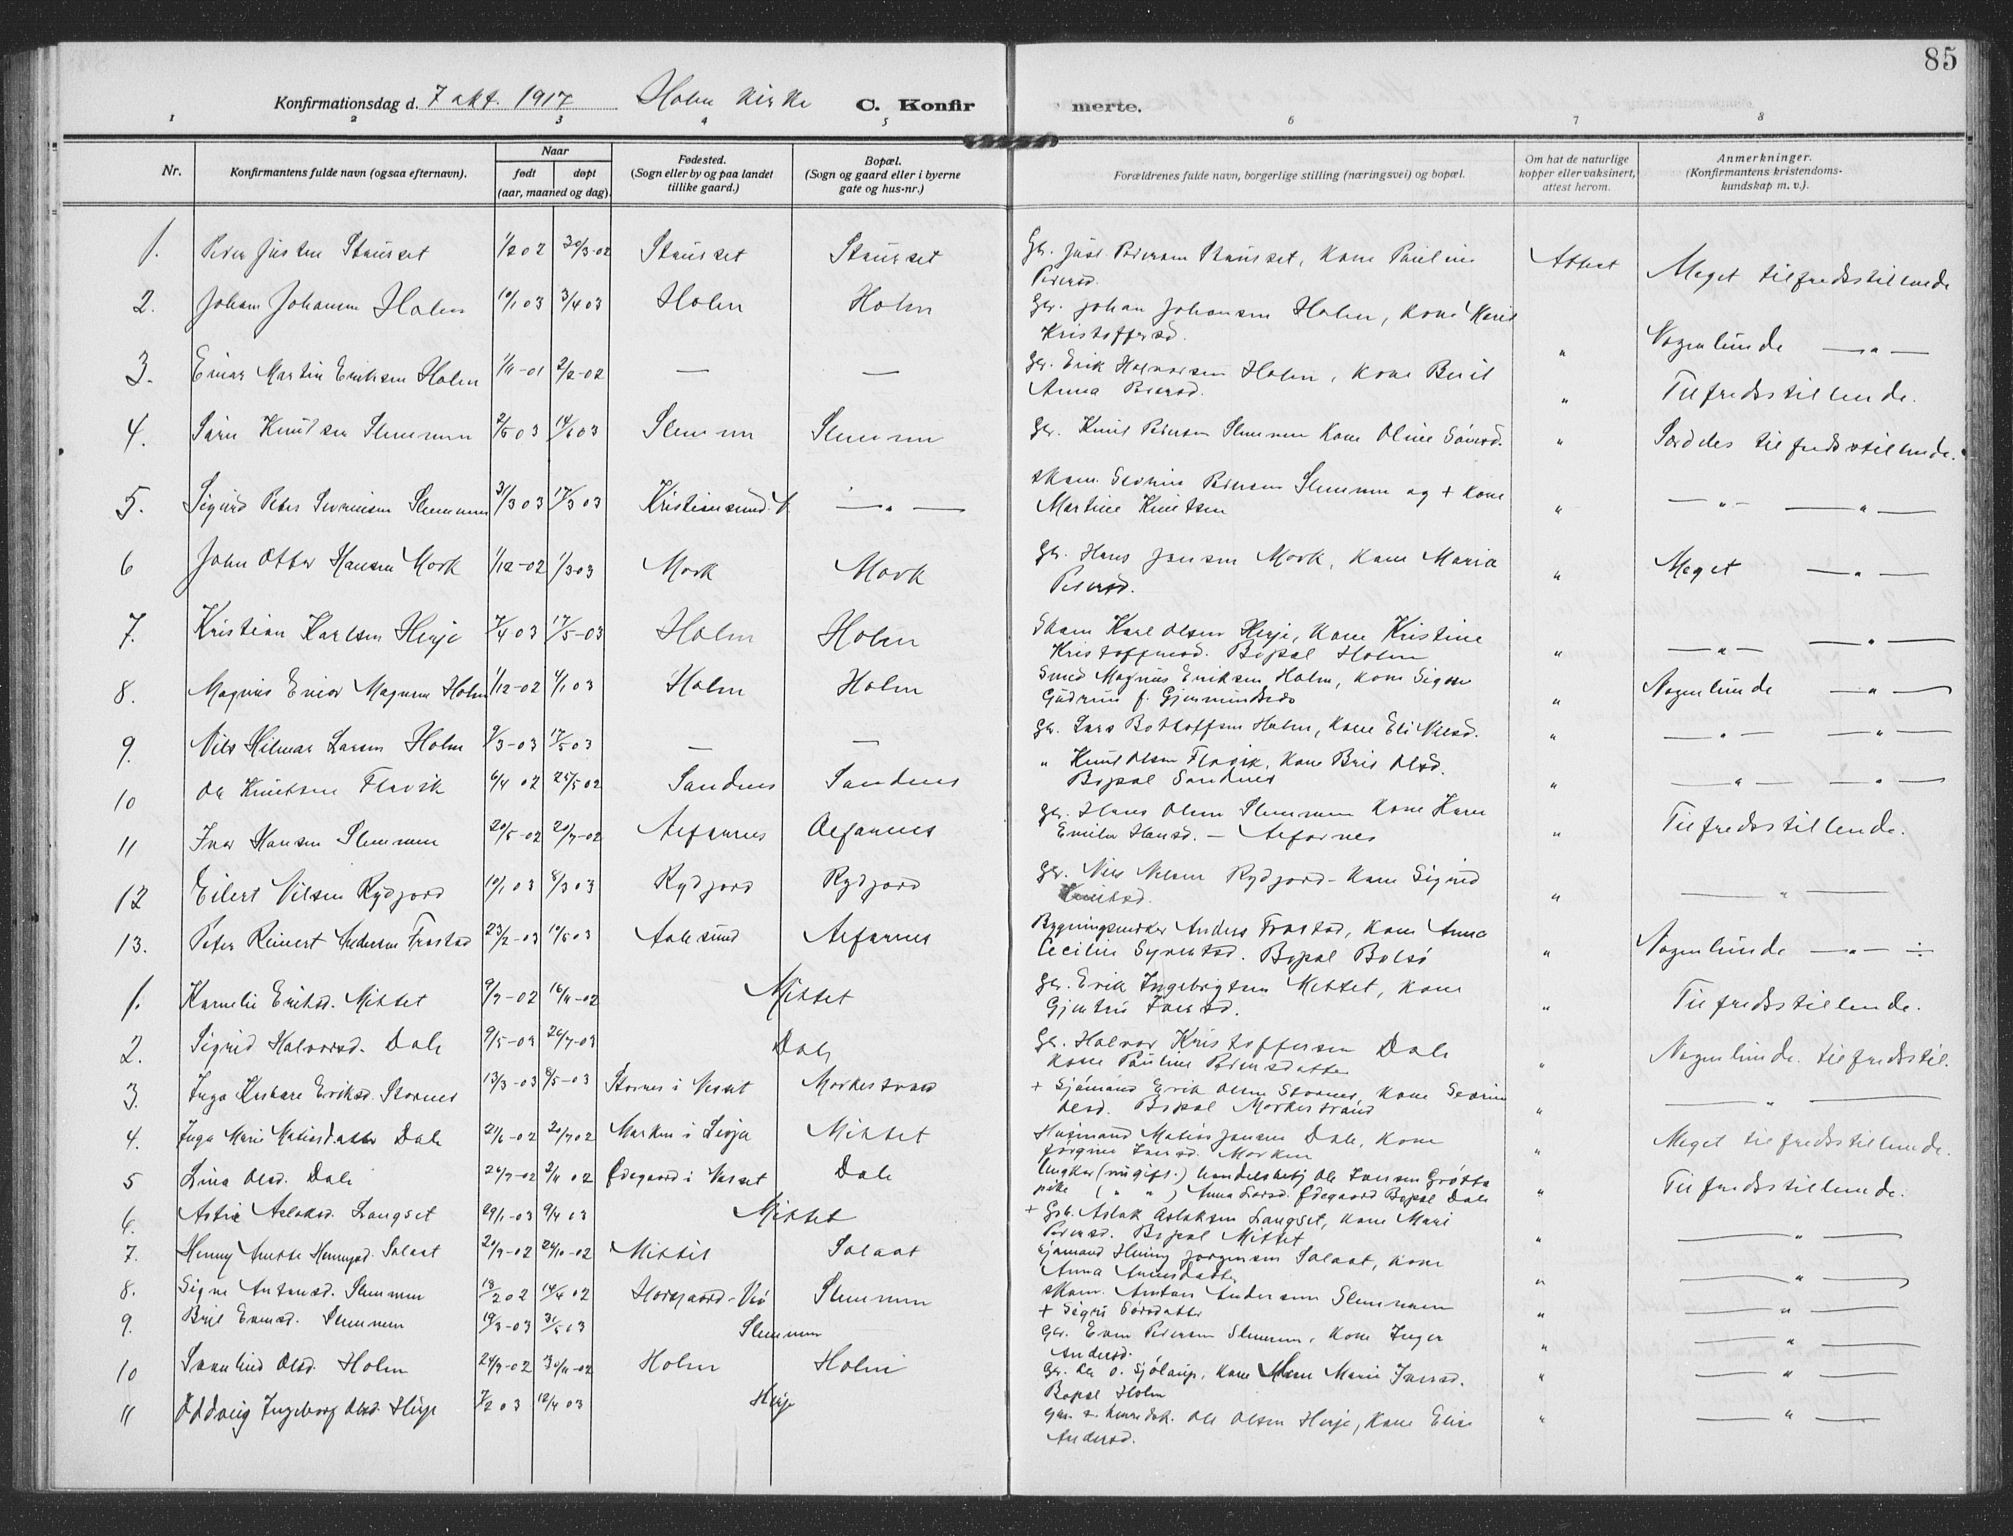 85
Konfirmationsdag d. 7 okt. 1917 Holm kirke C. Konfirmerte.
1 2 3 4 5 6 7 8
Nr.
Konfirmantens fulde navn (ogsaa efternavn).
Naar
født døpt
(aar, maaned og dag).
Fødested.
(Sogn eller by og paa landet
tillike gaard.)
Bopæl.
(Sogn og gaard eller i byerne
gate og hus-nr.)
Forældrenes fulde navn, borgerlige stilling (næringsvei) og bopæl.
Om hat de naturlige
kopper eller vaksinert,
attest herom.
Anmerkninger.
(Konfirmantens kristendoms-
kundskap m. v.).
1. Peder Justen Staurset 1/2 02 30/3-02 Staurset Staurset Gbr. Just Pedersen Staurset, Kone Pauline Attest Meget tilfredsstillende
Pedersd.
2. Johan Johansen Holm 10/1 03 3/4 03 Holm Holm Gbr. Johan Johansen Holm, Kone Marit
Kristoffersd. " Nogenlunde —"—
3. Einar Martin Eriksen Holm 1/11-01 2/2-02 — — Gbr. Erik Halvorsen Holm, Kone Beril
Anna Pedersd. " Tilfredsstillende.
4. Sørn Knutsen Slemmen 2/5 03 14/6 03 Slemmen Slemmen Gbr. Knut Pedersen Slemmen Kone Oline Sørnsd. " Særdeles tilfredsstillende.
5. Sigurd Peter Severinsen Slemmen 31/3 03 17/5 03 Kristiansund N. —"— Skom. Severin Pedersen Slemmen og + Kone
Martine Knutsen " —"— —"—
6 John Otter Hansen Mork 1/12-02 1/3 03 Mork Mork Gbr. Hans Jensen Mork, Kone Maria
Pedersd. " Meget —"—
7. Kristian Karlsen Hirje 7/4 03 17/5-03 Holm Holm Skom Karl Olsen Hirje, Kone Kristine
Kristoffersd. Bopæl Holm " —"— —"—
8. Magnus Einar Magnusen Holm 1/12-02 4/1 03 Holm Holm Smed Magnus Eriksen Holm, Kone Signe
Gudrun f. Gjermundsdo " Nogenlunde —"—
9. Nils Hilmar Larsen Holm 9/3-03 17/5 03 — — Gbr. Lars Bottolfsen Holm, Kone Eli Nilsd. " —"— —"—
10 Ole Knutsen Flovik 6/4 02 25/5 02 Sandnes Sandnes " Knut Olsen Flovik, Kone Brit Olsd.
Bopæl Sandnes " —"— —"—
11 Iver Hansen Slemmen 20/5-02 20/7-02 Aafarnes Aafarnes Gbr. Hans Olsen Slemmen Kone Karen
Emilie Hansd. – Aafarnes " Tilfredsstillende.
12 Eilert Nilsen Rydjord 10/1 03 8/3 03 Rydjord Rydjord Gbr. Nils Nilsen Rydjord – Kone Sigrid
Knutsd. " —"—
13. Peter Reinert Andersen Frostad 23/2-03 10/5 03 Aalesund Aafarnes Bygningssnekker Anders Frostad, Kone Anna
Cecilie Syvertsd. Bopæl Bolsø " Nogenlunde —"— ÷
1. Karnelie Eriksd. Mittet 9/7-02 16/11-02 Mittet Gbr. Erik Ingebrigtsen Mittet, Kone
Gjertrü Iversd. " Tilfredsstillende.
2. Sigrid Halvorsd. Dale 9/5-03 26/7-03 Dale Gbr. Halvor Kristoffersen Dale
Kone Pauline Pedersdatter " Nogenlunde tilfredsstil.
3. Inga Eriksd. Stornes 13/3-03 8/5-03 Stornes i Vesset Morkestrand + Sjømand Erik Olsen Stornes, Kone Severine
Olsd. Bopæl Morkestrand " —"—
4. Inga Marie Matiasdatter Dale 21/6-02 20/7 02 Marken i Sevja Mittet Husmand Matias Jensen Dale, Kone
Jørgine Iversd. Morken " Meget tilfredsstillende.
5 Lina Olsd. Dale 26/7-02 2/11 02 Ødegaard i Vesset Dale Ungkar (ungift) handelsbetj. Ole Iversen Grøtta
pike ( " " ) Anna Larsd. Ødegaard Bopæl Dale " Tilfredsstillende.
6. Astri Aslaksd. Langset 29/1-03 9/4 03 Mittet + Gbr. Aslak Aslaksen Langset, Kone Mari
Pedersd. Bopæl Mittet " —"—
7. Henny Anette Henningsd. Solaat 20/9-02 26/10-02 Mittet Solaat Sjømand Hening Jørgensen Solaat, Kone
Anna Arnesdatter " —"—
8. Signe Antonsd. Slemmen 18/2 02 14/4 02 Horsgaard-Vø Slemmen Skom. Anton Andersen Slemmen
+ Sigri Larsdatter " —"—
9. Brit Evensd. Slemmen 19/3-03 31/5 03 Slemmen Gbr. Even Pedersen Slemmen, Kone Inger
Andersd. " —"—
10 Olsd. Holm 24/9-02 30/11-02 Holm Holm Gbr. Ole O. Sjølaup, Kone Marie Iversd.
Bopæl Holm " —"—
11 Oddveig Ingeborg Olsd. Hirje 7/2 03 12/4 03 Hirje Ole Olsen Hirje, Kone Elise
Andersd. " —"—